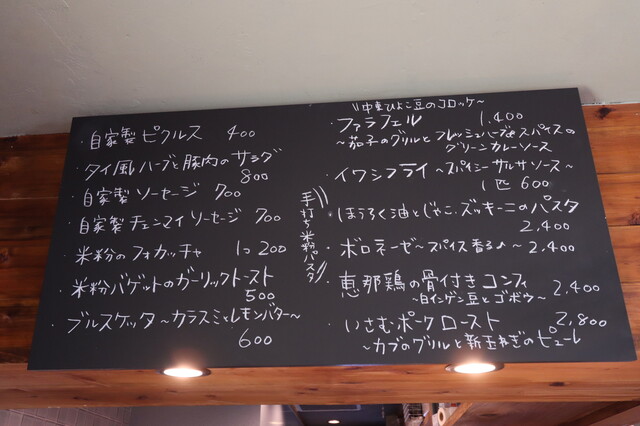 ・自家製ピクルス 400
タイ風ハーブと豚肉のサラダ
800
・自家製ソーセージ 700
・自家製チェンマイソーセージ 700
・米粉のフォカッチャ 1コ 200
・米粉バゲットのガーリックトースト
500
・ブルスケッタ～カラスミとレモンバター～
600
手打ち米粉パスタ
中東ひよこ豆のコロッケ～
・ファラフェル 1,400
～茄子のグリルとフレッシュハーブ&スパイスの
グリーンカレーソース
・イワシフライ～スパイシーサルサソース～
1匹 600
・ほうろく油とじゃこ、ズッキーニのパスタ
2,400
・ボロネーゼ～スパイス香る～ 2,400
・恵那鶏の骨付きコンフィ
～白インゲン豆とゴボウ～ 2,400
・いさむポークロースト 2,800
～カブのグリルと新玉ねぎのピューレ